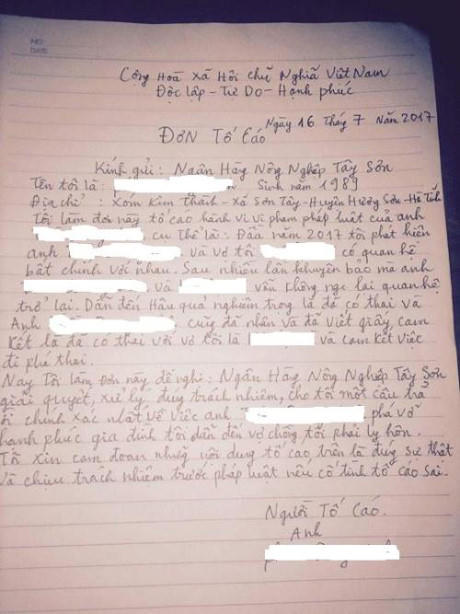 NO:
DATE:
Cộng Hoà Xã Hội chủ Nghĩa Việt Nam
Độc lập - Tự Do - Hạnh phúc
Ngày 16 Thág 7 Năm 2017
ĐƠN TỐ CÁO
Kính gửi: Ngân Hàng Nông Nghiệp Tây Sơn
Tên tôi là: Sinh năm 1989
Địa chỉ: Xóm Kim Thành - Xã Sơn Tây - Huyện Hương Sơn - Hà Tĩnh
Tôi làm đơn này tố cáo hành vi vi phạm pháp luật của anh
cụ thể là: Đầu năm 2017 tôi phát hiện
anh và vợ tôi có quan hệ
bất chính với nhau. Sau nhiều lần khuyên bảo mà anh
và vẫn không lại quan hệ
trở lại. Dẫn đến Hậu quả nghiêm trọng là đã có thai và
Anh cũg đã nhận và đã viết giấy cam
kết là đã có thai với vợ tôi là và cam kết việc
đi phá thai.
Nay Tôi làm đơn này đề nghị: Ngân Hàng Nông Nghiệp Tây Sơn
giải quyết, xử lý đúng trách nhiệm, cho tôi một câu trả
lời chính xác nhất về việc anh phá vỡ
hạnh phúc gia đình tôi dẫn đến vợ chồng tôi phải ly hôn.
Tôi xin cam đoan nhữg nội dung tố cáo trên là đúng sự thật
và chịu trách nhiệm trước pháp luật nếu cố tình tố cáo sai.
Người Tố Cáo.
Anh